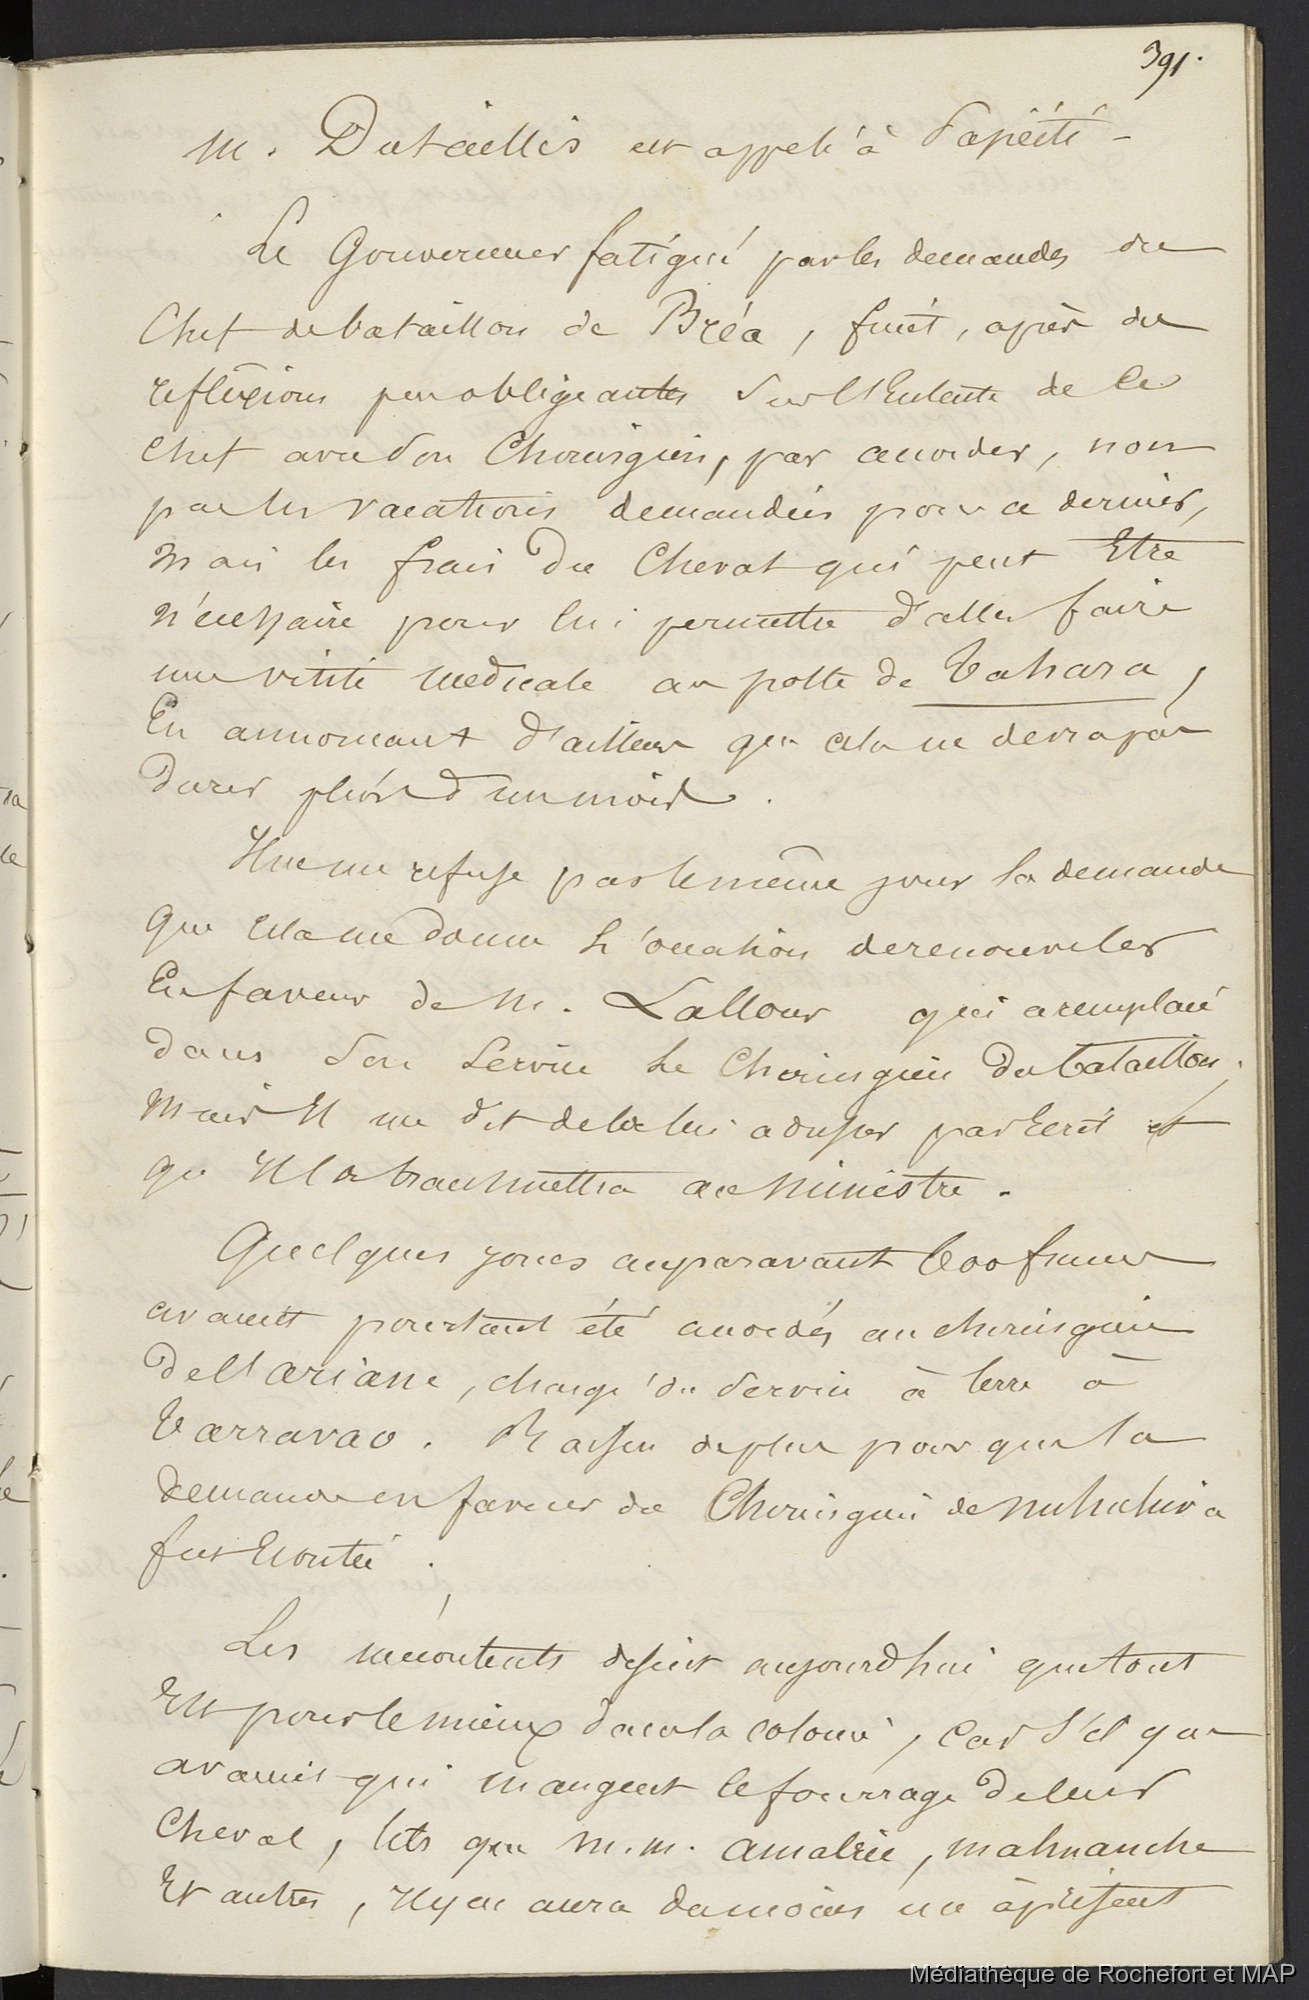 391.
M. Dutaillis est appelé à Papéiti -
Le Gouverneur fatigué par les demandes du
Chef de bataillon de Bréa, finit, après des
reflexions peu obligeantes sur l'Entente de ce
chef avec son Chirurgien, par accorder, non
pas les vacations demandées pour ce dernier,
mais les frais du Cheval qui peut Etre
nécessaire pour lui permettre d'aller faire
une visite medicale au poste de Tahara,
En annoncant d'ailleurs que cela ne devra pas
durer plus d'un mois.
Il me refuse par le même jour la demande
que cela me donne l'occasion de renouveler
En faveur de M. Lallour qui a remplacé
dans son service le Chirurgien du bataillon,
Mais Il me dit de la lui adresser par Ecrit et
qu'Il la transmettra au Ministre.
Quelques jours auparavant 600 francs
avaient pourtant été accordés au chirurgien
de l'ariane, chargé du service à terre à
Tarravao. Raison de plus pour que la
demande en faveur du Chirurgien de nuhuhiva
fut Ecoutée.
Les mécontents disent aujourd'hui que tout
Est pour le mieux dans la colonie, Car s'il y a
avaient qui mangent le fourrage de leur
Cheval, tels que M.M. amalric, malmanche
Et autres, Il y en aura du moins un à présent
Médiathèque de Rochefort et MAP